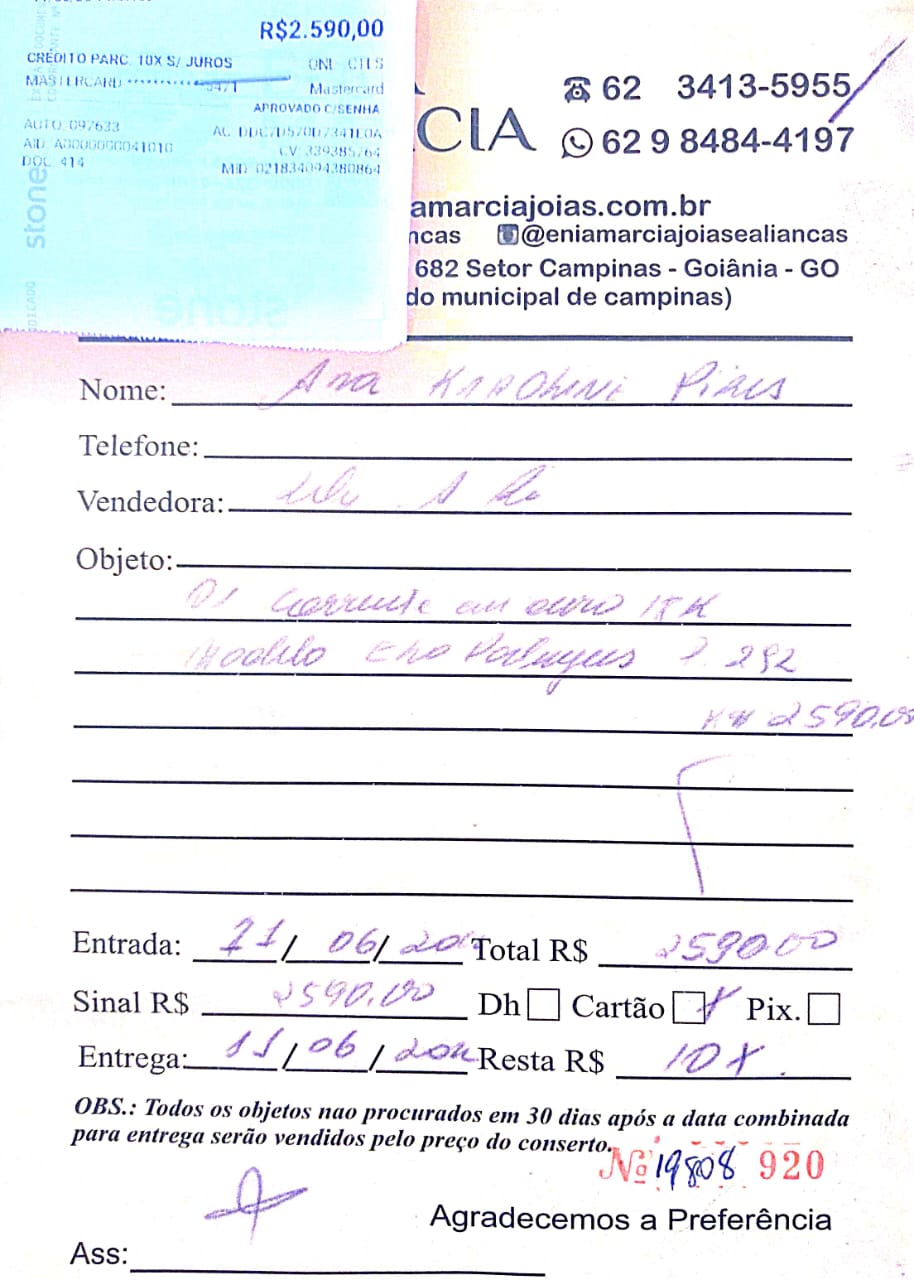 R$2.590,00
CRÉDITO PARC. 10X S/ JUROS
MASTERCARD
Mastercard
APROVADO C/SENHA
AUTO: 097633
AID: A0000000041010
DOC: 414
CV: 339385764
MID: 021834094380864
stone
CIA
62 3413-5955
62 9 8484-4197
amarciajoias.com.br
ncas @eniamarciajoiasealiancas
682 Setor Campinas - Goiânia - GO
do municipal de campinas)
Nome: Ana Karolini Pires
Telefone:
Vendedora:
Objeto:
01 Corrente em ouro 18K
Modelo Elo Portugues P. 292
R$ 2590,00
Entrada: 11/06/ Total R$ 2590.00
Sinal R$ 2590.00 Dh Cartão Pix.
Entrega: 11/06/ Resta R$ 10X
OBS.: Todos os objetos nao procurados em 30 dias após a data combinada
para entrega serão vendidos pelo preço do conserto.
Nº 19808 920
Agradecemos a Preferência
Ass: